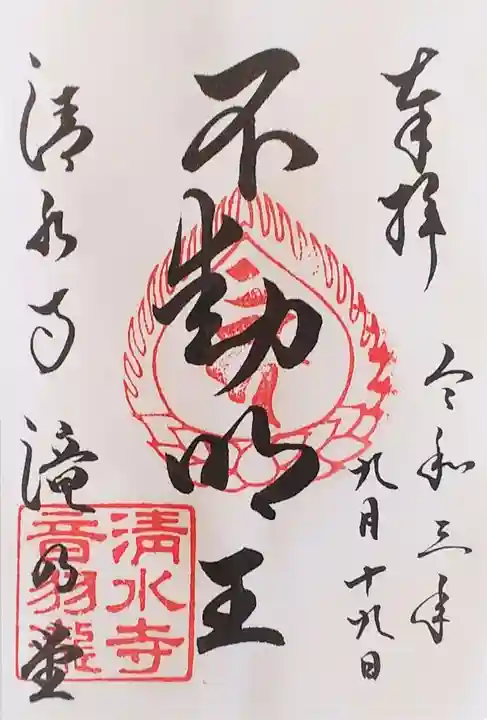 奉拝
令和三年
九月十九日
不動明王
清水寺 滝乃堂
清水寺
音羽瀧